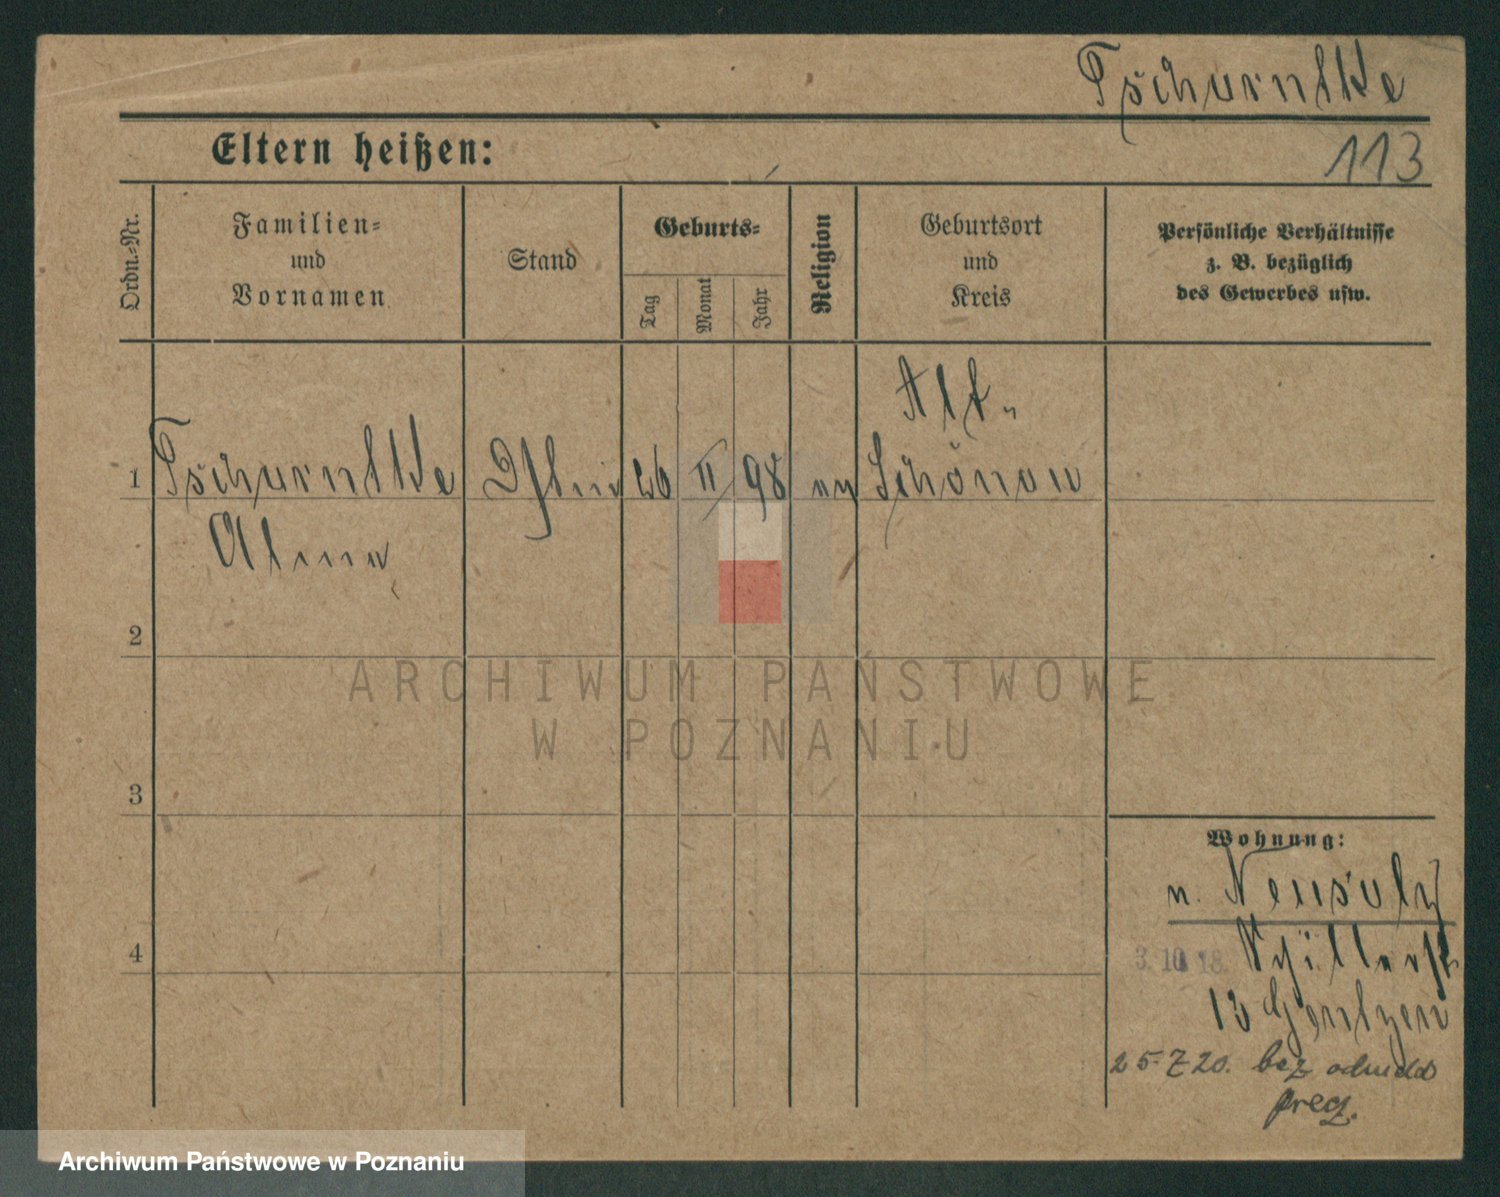 Tscharntke
113
Eltern heißen:
Ordn.-Nr.
Familien-
und
Vornamen
Stand
Geburts-
Tag
Monat
Jahr
Religion
Geburtsort
und
Kreis
Persönliche Verhältnisse
z. B. bezüglich
des Gewerbes usw.
Alt-
1 Tscharntke 26 II 98 ev Schönau
Alma
2
ARCHIWUM PAŃSTWOWE
W POZNANIU
3
Wohnung:
n. Neusulz
4
3. 10. 18. Schillerstr.
13
25.7.20. bez
Archiwum Państwowe w Poznaniu